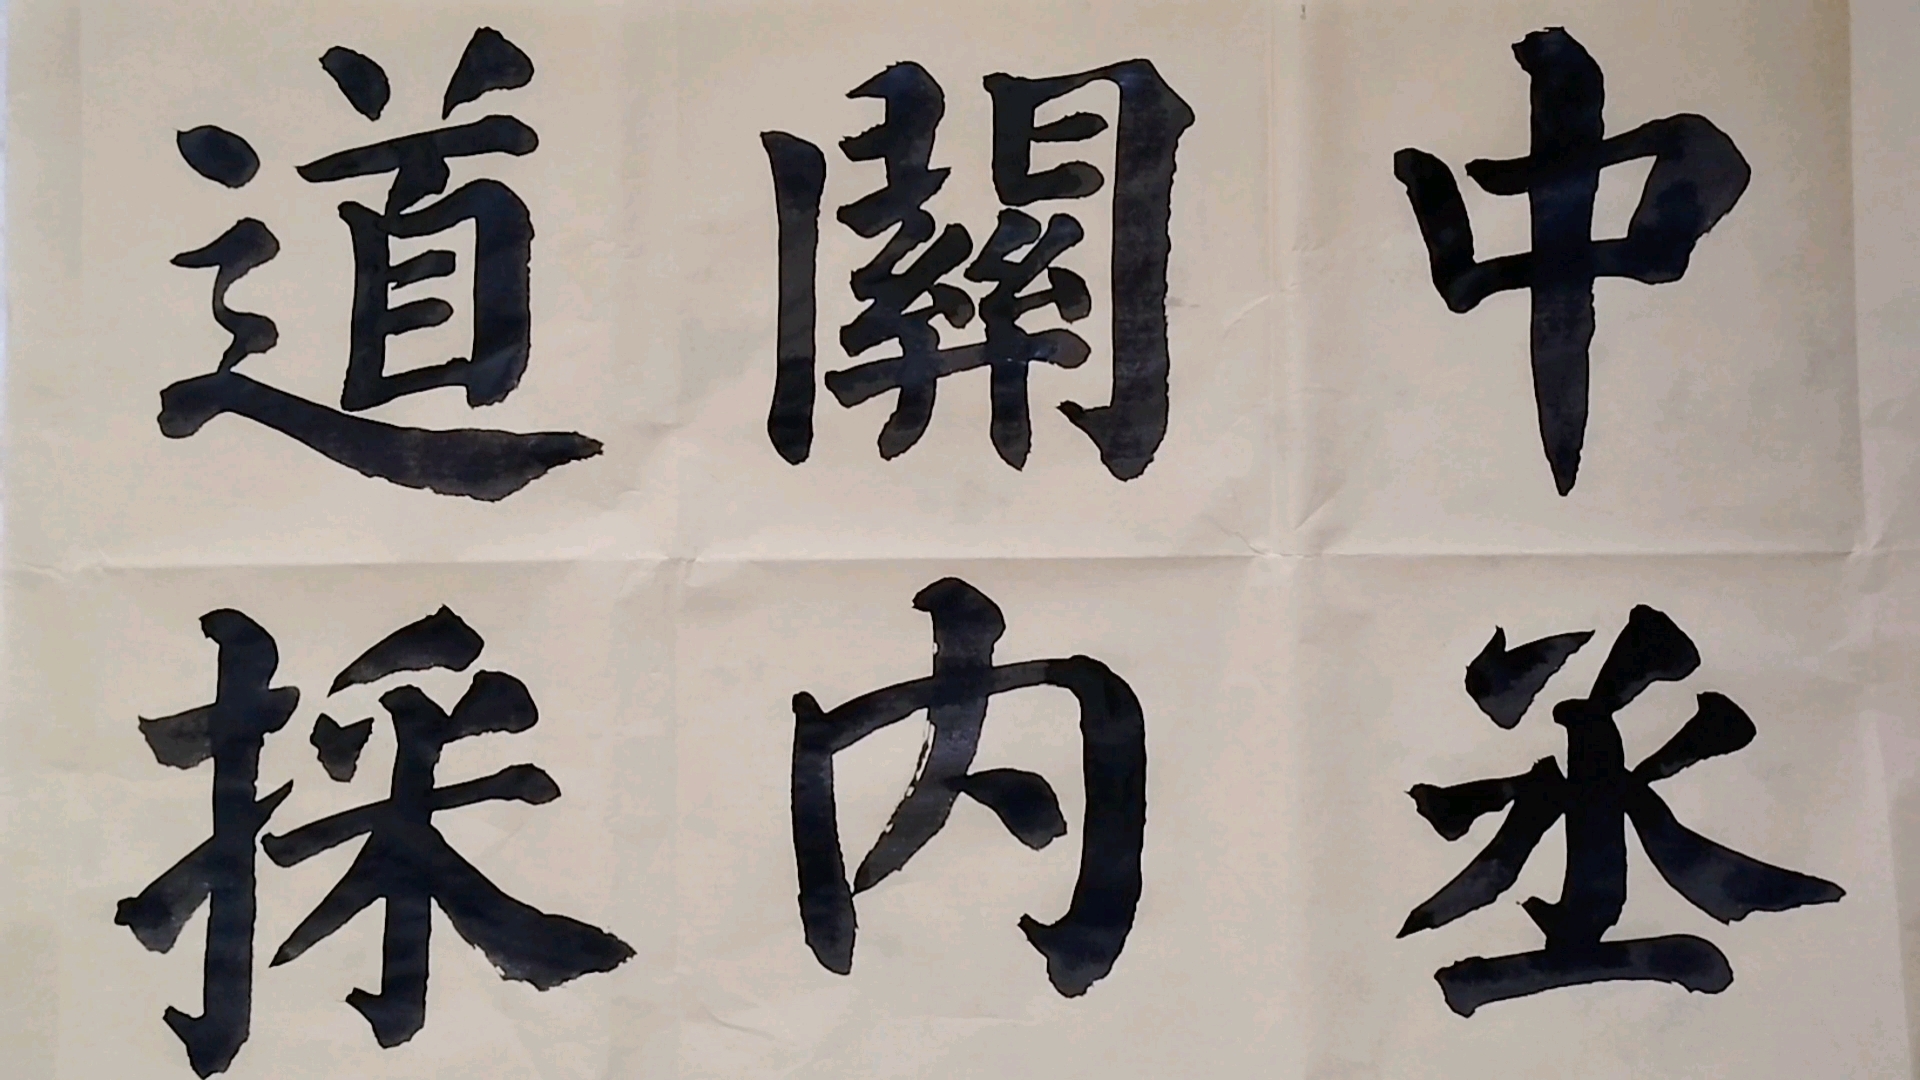 中丞
關内
道採